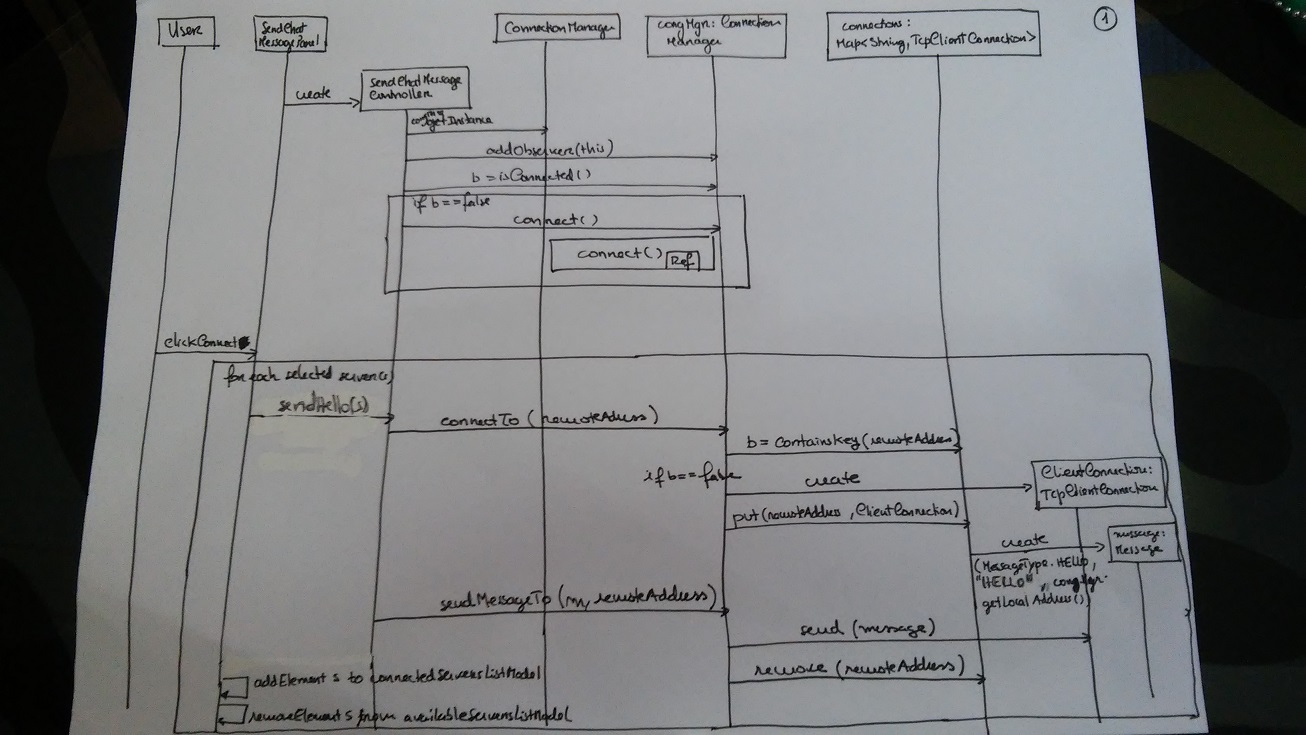 User
SendChat
MessagePanel
ConnectionManager
congMgr: Connection
Manager
connections:
Map<String, TcpClientConnection>
1
create
SendChatMessage
Controller
getInstance
addObserver(this)
b = isConnected()
if b == false
connect()
connect() Ref
clickConnect
for each selected server(s)
sendHello(s)
connectTo (remoteAddress)
b = containsKey(remoteAddress)
if b == false
create
ClientConnection:
TcpClientConnection
put(remoteAddress, ClientConnection)
create
message:
Message
(MessageType.HELLO,
"HELLO", congMgr.
getLocalAddress())
sendMessageTo (m, remoteAddress)
send (message)
remove (remoteAddress)
addElement s to connectedServersListModel
removeElement s from availableServersListModel